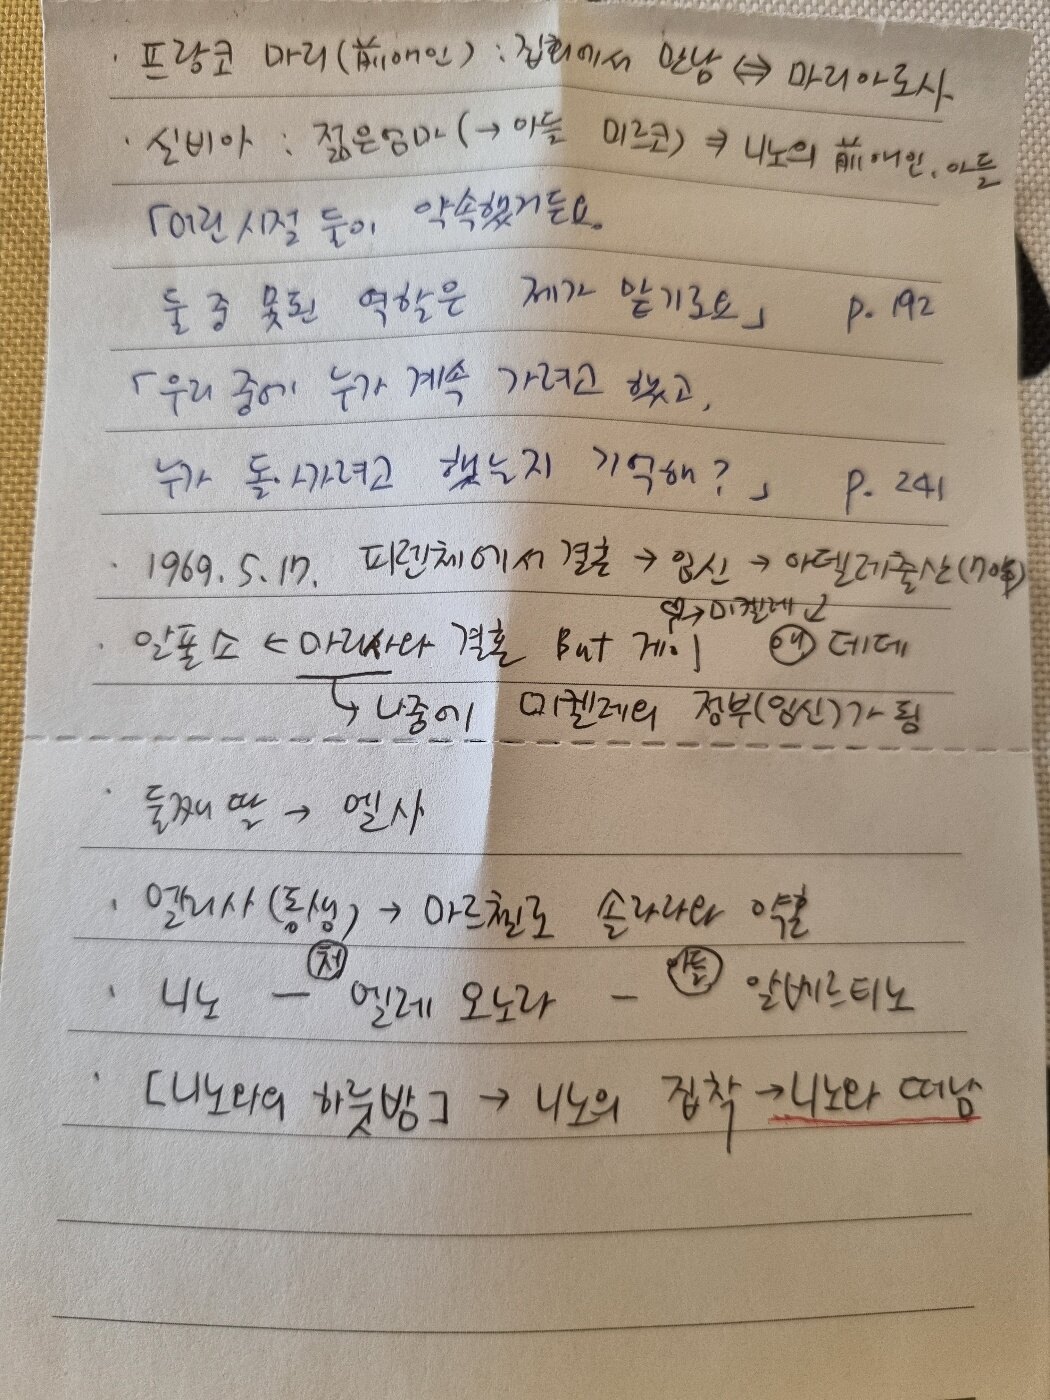 · 프랑코 마리(前애인) : 집회에서 만남 ⇔ 마리아로사
· 실비아 : 젊은엄마(→ 아들 미르코) ⇒ 니노의 前애인, 아들
「어린시절 둘이 약속했거든요.
둘 중 못된 역할은 제가 맡기로요」 p. 192
「우리 중에 누가 계속 가려고 했고,
누가 돌아가려고 했는지 기억해?」 p. 241
· 1969. 5. 17. 피렌체에서 결혼 → 임신 → 아델레출산(70年)
♡→미켈레
· 알폰소 ← 마리사와 결혼 But 게이 애 데데
↳ 나중에 미켈레의 정부(임신)가 됨
· 둘째 딸 → 엘사
· 엘리사(동생) → 마르첼로 솔라라와 약혼
· 니노 - 처 엘레오노라 - 아들 알베르티노
· [니노와의 하룻밤] → 니노의 집착 → 니노와 떠남